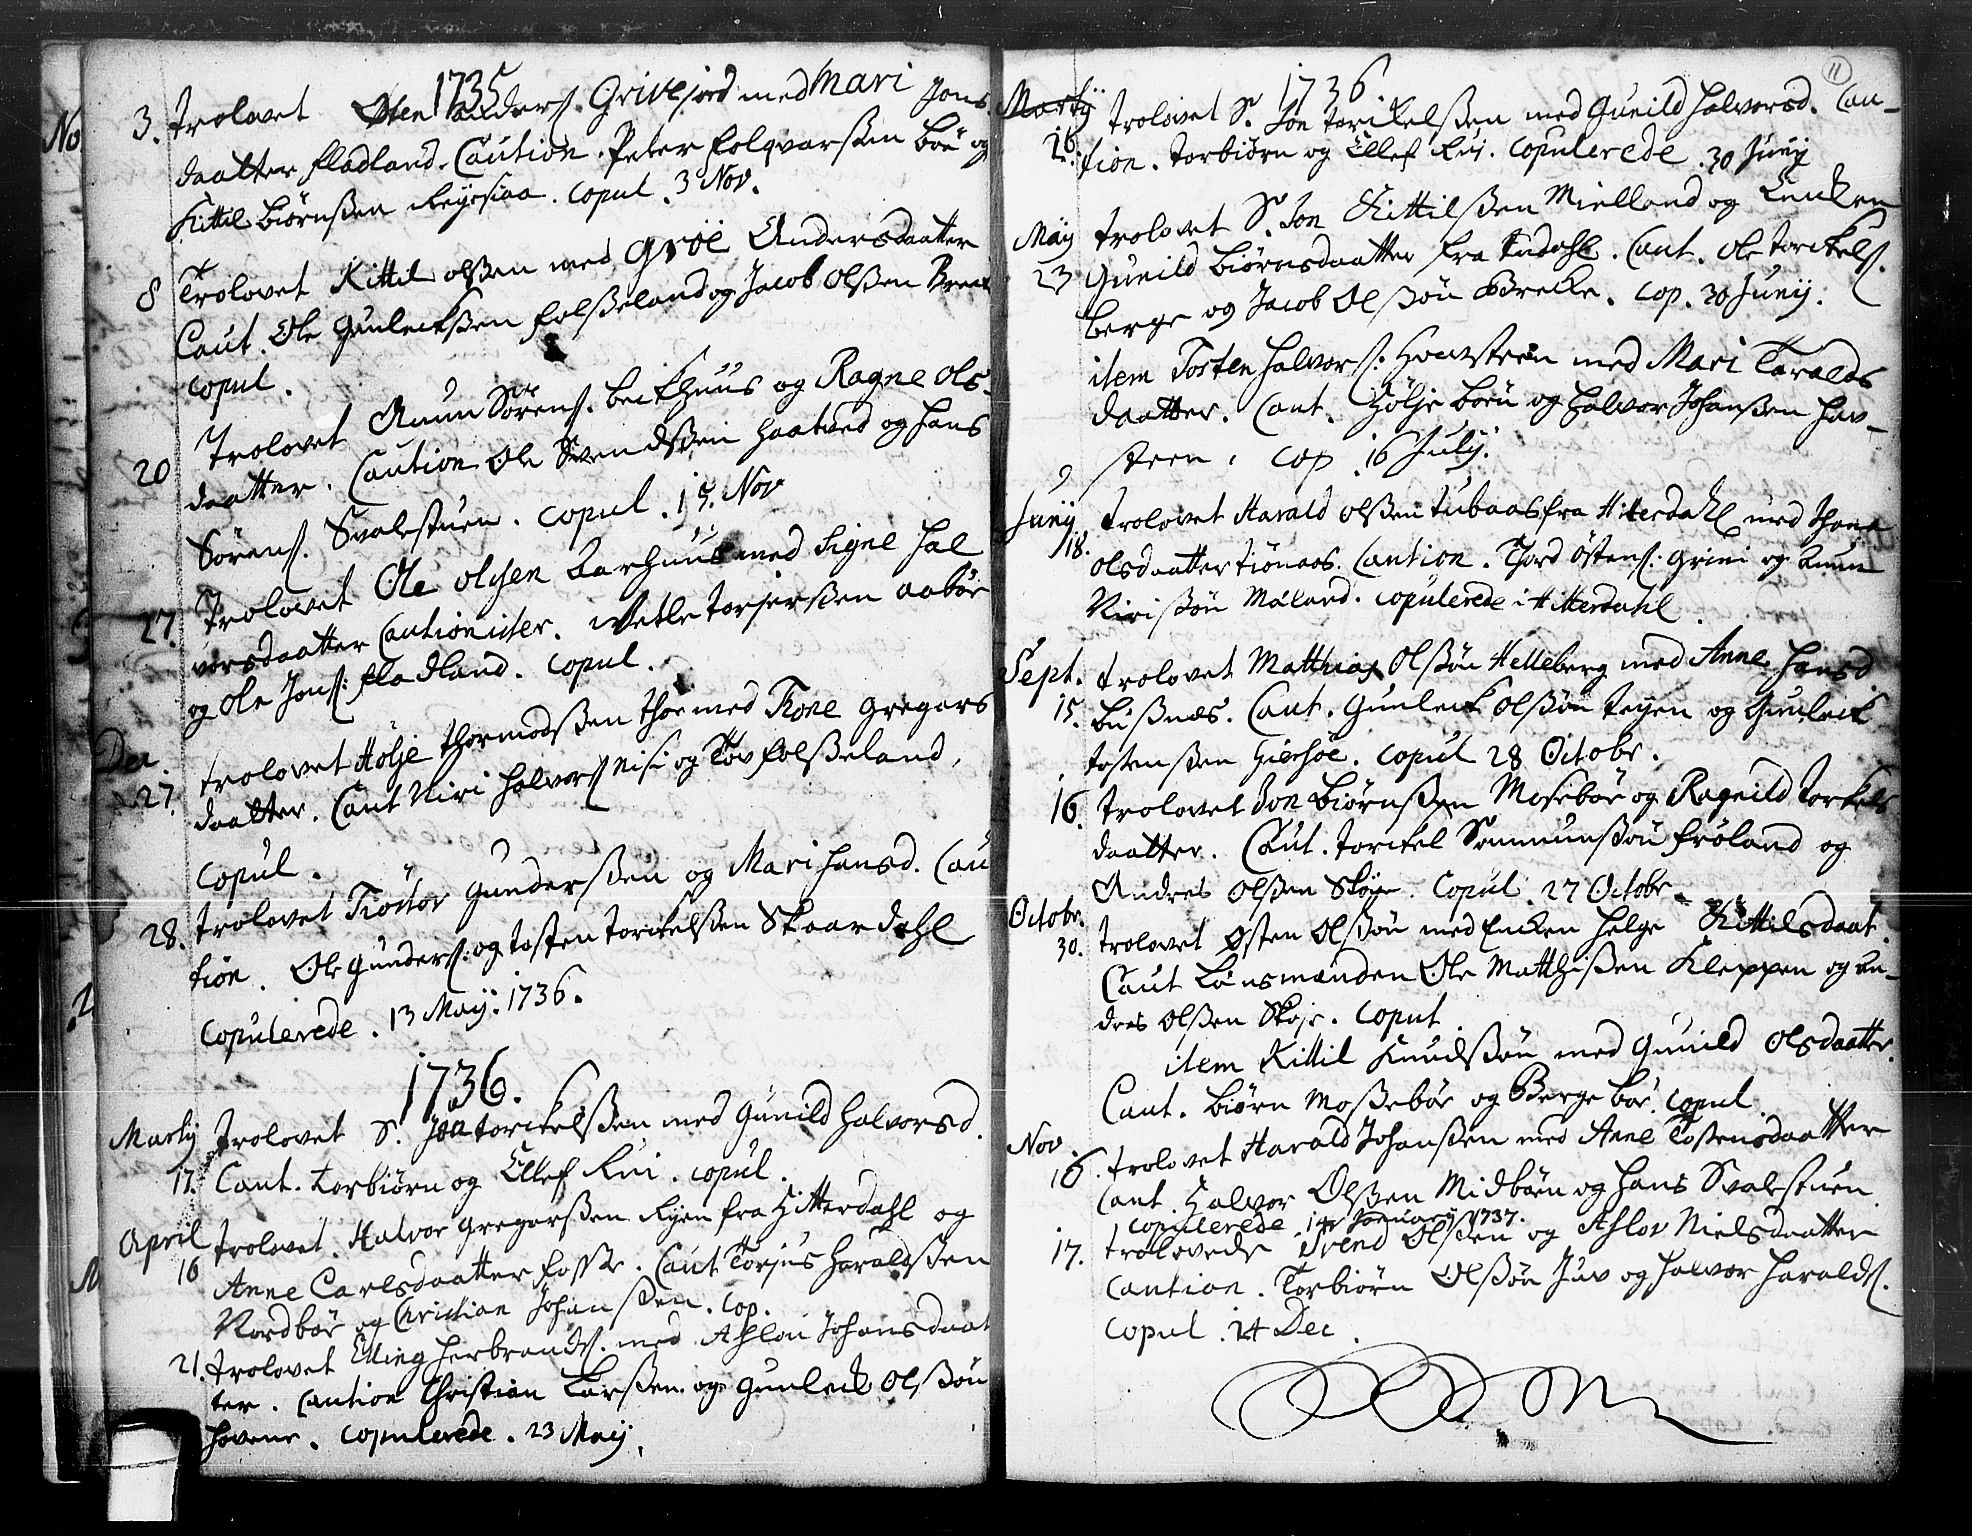 1735
No
3. Trolovet Østen Anders. Grivejord med Mari Jons
daatter Fladland. Caution. Peter Folqvarsßen Böe og
Kittil Biörnßen . copul. 3 Nov.
8 Trolovet Kittil Olßen med Gröe Andersdaatter
Caut. Ole Gunleikßen Folßeland og Jacob Olßen Breck
copul.
20 Trolovet Aanun Sörens. Beckhuus og Ragne Ols-
daatter. Caution Ole Svendßen Haatved og Hans
Sörens. Svalestuen. copul. 15. Nov
27 Trolovet Ole Olsen Barhuus med Signe Hal
vorsdaatter Cautionister. Vetle Torjersßen Aaböe
og Ole Jons. Fladland. copul.
Dec.
27. trolovet Hölje Thormodßen Thoe med Tone Gregars
daatter. Caut Niri Halvors Nisi og Tov Folßeland,
copul.
28. trolovet Tiöstov Gunderßen og Mari Hansd. Cau
tion. Ole Gunders. og Tosten Torkelßen Skaardahl
copulerede. 13 Maij. 1736.
1736.
Martij trolovet S. Jon Torkelßen med Gunild Halvorsd.
17. Caut. Torbiörn og Ellef Rui. copul.
April trolovet. Halvor Gregarßen Ryen fra Hitterdahl og
16 Anne Carlsdaatter Fosse. Caut Torjus Haraldßen
Nordböe og Christian Johanßen. cop.
21. trolovet Elling Herbrands. med Aslou Johansdaat
ter. Caution Christian Larßen og Gunleik Olßön
Hovene. copulerede. 23 Maij.
11
1736.
Martij trolovet S. Jon Torkelßen med Gunild Halvorsd. Cau-
16. tion. Torbiörn og Ellef Rui. copulerede. 30 Junij
Maij trolovet S. Jon Kittilßen Mielland og Encken
23 Gunild Biörnsdaatter fra . Caut. Ole Torkels.
Berge og Jacob Olßön Brecke. cop. 30 Junij.
item Tosten Halvors. Hovsteen med Mari Taralds
daatter. Caut. Hölje Böen og Halvor Johanßen Hov-
steen. cop. 16 Julij.
Junij trolovet Harald Olßen Tubaas fra Hitterdahl med Thone
18. Olsdaatter Tiönaas. Caution. Thord Östens. Grini og Aanun
Nirißön Måland. copulerede i Hitterdahl.
Sept. trolovet Matthias Olßön Helleberg med Anne Hansd
15. Bußnæs. Caut. Gunleik Olßön Teyen og Gunleik
Tostenßen Gierhöe. copul 28 Octobr.
16. trolovet Jon Biörnßen Moseböe og Ragnild Torkels
daatter. Caut. Torkel Simmunßön Fröland og
Andres Olßen Sköje. Copul. 27 Octobr.
Octobr.
30. trolovet Østen Olßön med Encken Helge Kittilsdaat.
Caut Lensmanden Ole Matthißen Kleppen og An-
dres Olßen Skoje. copul
item Kittil Knudßön med Gunild Olsdaatter.
Caut. Biörn Moßeböe og Berge Böe. copul.
Nov.
16. trolovet Harald Johanßen med Anne Tostensdaatter
Caut. Halvor Olßen Midböen og Hans Svalestuen
copulerede. 14 Januarij 1737.
17. trolovede Svend Olßen og Aslov Nielsdaatter
Caution. Torbiörn Olßön Juv og Halvor Haralds.
copul. 14 Dec.